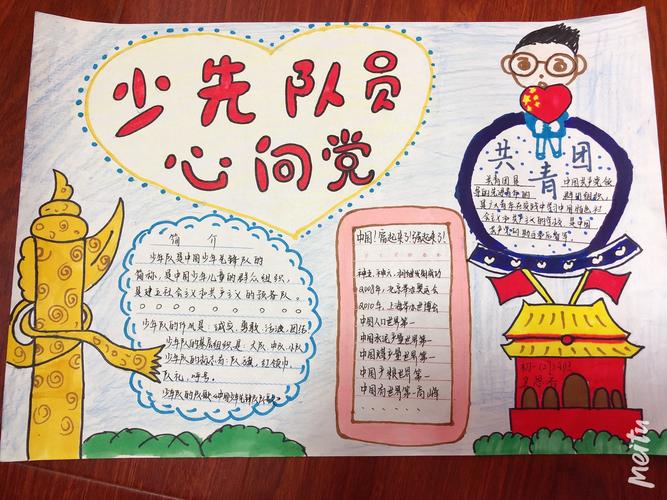 少先队员
心向党
共青团
共青团是中国共产党领
导的先进青年的群团组织,
是广大青年在实践中学习中国特色社
会主义和共产主义的学校,是中国
共产党的助手和后备军。
简介
少年队是中国少年先锋队的
简称,是中国少年儿童的群众组织,
是建立社会主义和共产主义的预备队。
少年队的作风是:诚实、勇敢、活泼、团结
少年队的基层组织是:大队、中队、小队
少年队的标志有:队旗、红领巾、
队礼、呼号。
少年队的队歌:《中国少年先锋队队歌》
中国!富起来了!强起来了!
神五、神六、
2008年,北京奥运会
2010年,上海举世博会
中国人口世界第一
中国水泥产量世界第一
中国煤产量世界第一
中国产粮世界第一
中国有世界第一高峰
初一(2)
meitu